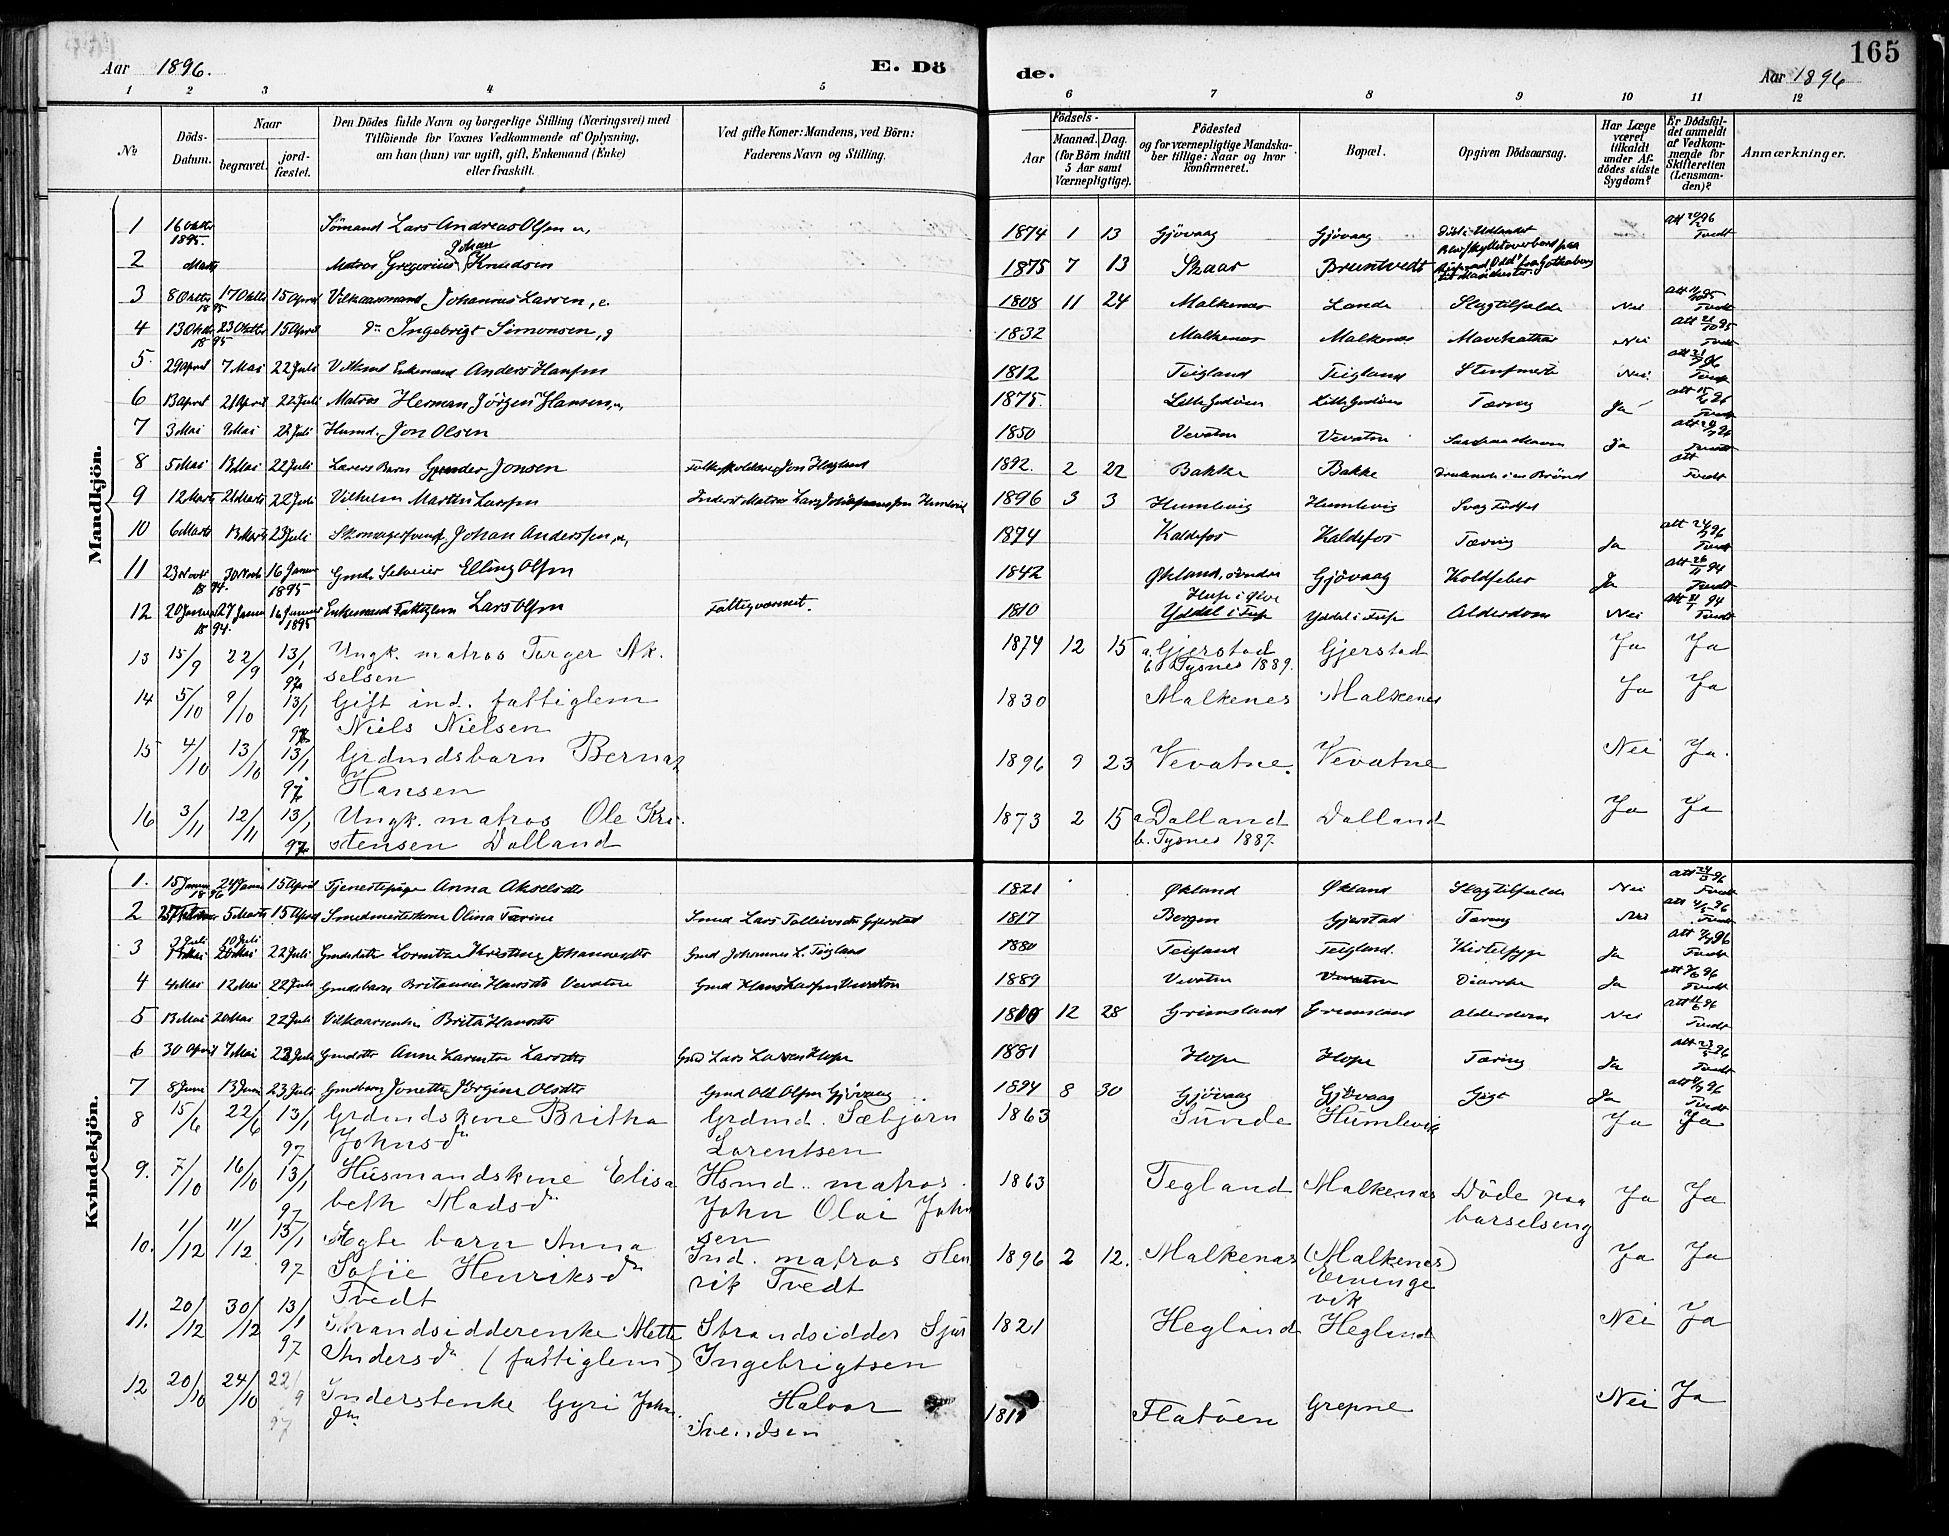 165
Aar 1896.
E. Döde.
Aar 1896
1 2 3 4 5 6 7 8 9 10 11 12
№
Döds-Datum.
Naar
begravet.
jord-fæstet.
Den Dödes fulde Navn og borgerlige Stilling (Næringsvei) med
Tilföiende for Voxnes Vedkommende af Oplysning,
om han (hun) var ugift, gift, Enkemand (Enke)
eller fraskilt.
Ved gifte Koner: Mandens, ved Börn:
Faderens Navn og Stilling.
Födsels-
Aar
Maaned. Dag.
(for Börn indtil
5 Aar samt
Værnepligtige).
Födested
og for værnepligtige Mandska-
ber tillige: Naar og hvor
konfirmeret.
Bopæl.
Opgiven Dödsaarsag.
Har Læge
været
tilkaldt
under Af-
dödes sidste
Sygdom?
Er Dödsfal-
det anmeldt
af Vedkom-
mende for
Skifteretten
(Lensman-
den)?
Anmærkninger.
Mandkjön.
1 16 Oktbr 1895. Sömand Lars Andreas Olsen u, 1874 1 13 Gjövaag Gjövaag
2 Marts Matros Gregorius Johan Knudsen 1875 7 13 Skaar Bruntvedt
3 8 Oktbr 17 Oktbr 1895 15 April Vilkaarsmand Johannes Larsen, e. 1808 11 24 Malkenes Lande Slagtilfælde Nei
4 13 Oktbr 23 Oktbr 1895 15 April do Ingebrigt Simonsen, g 1832 Malkenes Malkenes Mavekathar Nei
5. 29 April 7 Mai 22 Juli Enkemand Anders Hansen 1812 Teigland Teigland Nei.
6 13 April 21 April 22 Juli Matros Herman Jörgen Hansen, u, 1875. Tæring Ja
7 3 Mai 9 Mai 22 Juli Husmd. Jon Olsen 1850 Vevatne Vevatne Ja
8 5 Mai 13 Mai 22 Juli Lærers Barn Gunder Jonsen Folkeskolelærer Jon Hegland 1892. 2 22 Bakke Bakke Druknede i en Brönd
9 12 Marts 21 Marts 22 Juli Vilhelm Martin Larsen 1896 3 3 Humlevig Humlevig Svag Födsel
10 6 Marts 13 Marts 23 Juli Skomagersvend Johan Anderssen, u, 1874 Kaldefos Kaldefos Tæring Ja
11 23 Novbr 30 Novb 1894. 16 Januar 1895 Gmd. Selveier Elling Olsen 1842 Økland, Gjövaag Koldfeber Ja
12 20 Januar 27 Januar 1894. 16 Januar 1895 Enkemand Fattiglem Lars Olsen Fattigvæsnet. 1810 Yddal i Fuse Yddal i Fuse Alderdom Nei
13 15/9 22/9 13/1 97 Ungk. matros Torger Ak-
selsen 1874 12 15 a. Gjerstad
b. Tysnes 1889. Gjerstad Ja Ja
14 5/10 9/10 13/1 97 Gift ind. fattiglem
Niels Nielsen 1830 Malkenes Malkenes Ja Ja
15 4/10 13/10 13/1 97 Grdmdsbarn Bernat
Hansen 1896 9 23 Vevatne. Vevatne Nei Ja.
16 3/11 12/11 13/1 97 Ungk. matros Ole Kri-
stensen Dalland 1873 2 15 a Dalland
b. Tysnes 1887. Dalland Ja Ja
Kvindekjön.
1. 15 Januar 24 Januar 1896 15 April Tjenestepige Anna Akselsdtr 1821 Økland Økland Slagtilfælde Nei
2 5 Marts 15 April Smedmesterkone Olina Tærine Smed Lars Tolleivsen Gjerstad 1817 Bergen Gjerstad Tæring Nei
3 2 Juli 10 Juli 22 Juli Gmdsdatter Lorentze Kristine Johannesdtr Gmd Johannes L. Teigland 1880 Teigland Teigland. Kirtelsyge Ja
4 4 Mai 12 Mai 22 Juli Gmdsbarn Britanne Hansdtr Vevatne Gmd Hans Larsen Vevatne 1889 Vevatne Vevatne Diarrhe Ja
5 13 Mai 20 Mai 22 Juli Vilkaarsenke Brita Hansdtr 1810 12 28 Grimsland Grimsland Alderdom Nei
6 30 April 7 Mai 22 Juli Gmdsdtr Anne Larentze Larsdtr Gmd Lars Larsen Hope 1881 Hope Hope Tæring Ja
7 8 Juni 13 Juni 23 Juli Gmdsbarn Jonette Jörgine Olsdtr Gmd Ole Olsen Gjövaag 1894 8 30 Gjövaag Gjövaag Gigt Ja
8 15/6 22/6 13/1 97 Grdmdskone Britha
Johnsdr Grdmd. Sæbjörn
Lorentsen 1863 Sunde Humlevik Ja Ja
9. 7/10 16/10 13/1 97 Husmandskone Elisa
beth Madsdr Hsmd. matros
John Olai John
sen 1863 Tegland Malkenes Döde paa
barselseng Ja Ja
10. 1/12 11/12 13/1 97 Ægte barn Anna
Sofie Henriksdr
Tvedt Ind. matros Hen
rik Tvedt 1896 2 12. Malkenes (Malkenes)
Eininge
vik Ja Ja
11. 20/12 30/12 13/1 97 Strandsidderenke Mette
Andersdr (fattiglem) Strandsidder Sjur
Ingebrigtsen 1821 Hegland Hegland Nei Ja
12 20/10 24/10 22/9 97 Inderstenke Gyri John
Halvor
Svendsen Flatöen Grepne Nei Ja